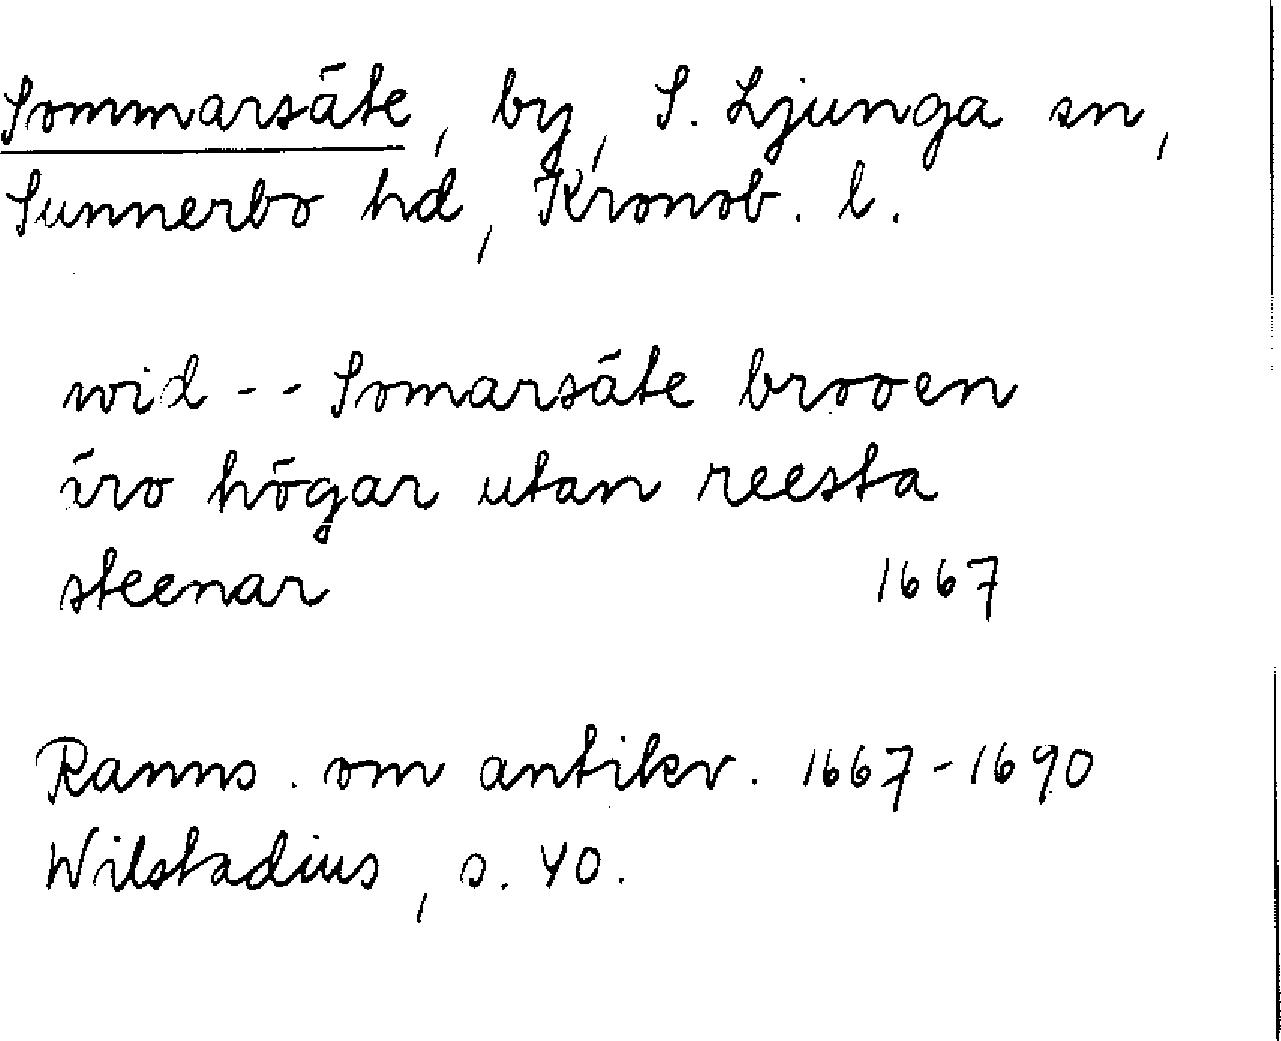 Sommarsäte, by, S. Ljunga sn,
Sunnerbo hd, Kronob. l.
wid -- Somarsäte brooen
äro högar utan reesta
steenar 1667
Ranns. om antikv. 1667-1690
Wilstadius, s. 40.